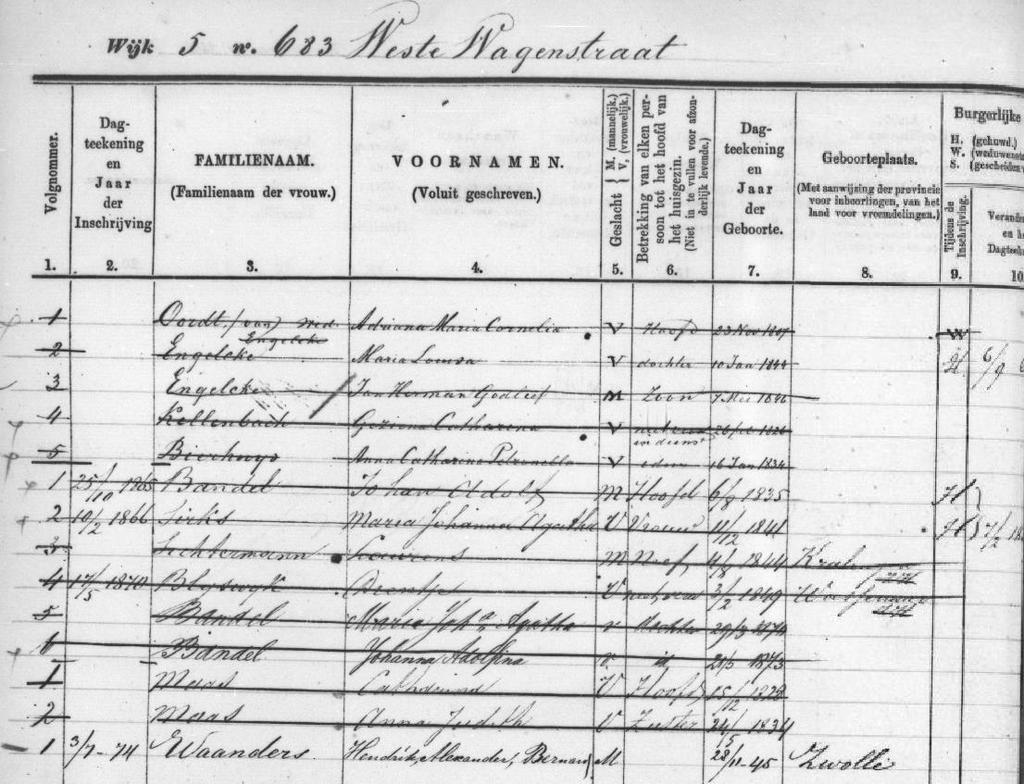 Wijk 5 nº. 683 Weste Wagenstraat
Volgnommer.
Dag-
teekening
en
Jaar
der
Inschrijving
FAMILIENAAM.
(Familienaam der vrouw.)
VOORNAMEN.
(Voluit geschreven.)
Geslacht { M. (mannelijk.) V. (vrouwelijk.)
Betrekking van elken per-
soon tot het hoofd van
het huisgezin.
(Niet in te vullen voor afzon-
derlijk levende.)
Dag-
teekening
en
Jaar
der
Geboorte.
Geboorteplaats.
(Met aanwijzing der provincie
voor inboorlingen, van het
land voor vreemdelingen.)
Burgerlijke
H. (gehuwd.)
W. (weduwensta
S. (gescheiden
Tijdens de
Inschrijving.
Verand
en h
Dagteek
1. 2. 3. 4. 5. 6. 7. 8. 9. 10
1 Oordt (van) wed. Adriana Maria Cornelia V Hoofd 23 Nov W
Engelcke
2 Engelcke Maria Louisa V dochter 10 Jan 1844 6/9
3 Engelcke Jan Herman Godlief M Zoon 7 Mei 1846
4 Kellenbach Geziena Catharina V
in dienst
5 Bierhuys Anna Catharina Petronella V idem 16 Jan 1834
1 25/10 1865 Bandel Johan Adolf M Hoofd 6/8 1835 H
2 10/2 1866 Sirks Maria Johanna Agatha V Vrouw 11/12 1841 H
3 Lichtermann Lourens M Neef 4/8 1844
4 17/5 1870 Blyswyk V 3/2 1849
5 Bandel Maria Joha Agatha v dochter 29/3
6 Bandel Johanna Adolfina v id 21/5 1873
1 Maas Catharina V Hoofd 15/12 1828
2 Maas Anna Judith V Zuster 24/5 1834
1 3/7-74 Waanders Hendrik, Alexander, Bernard M 28/11-45 Zwolle